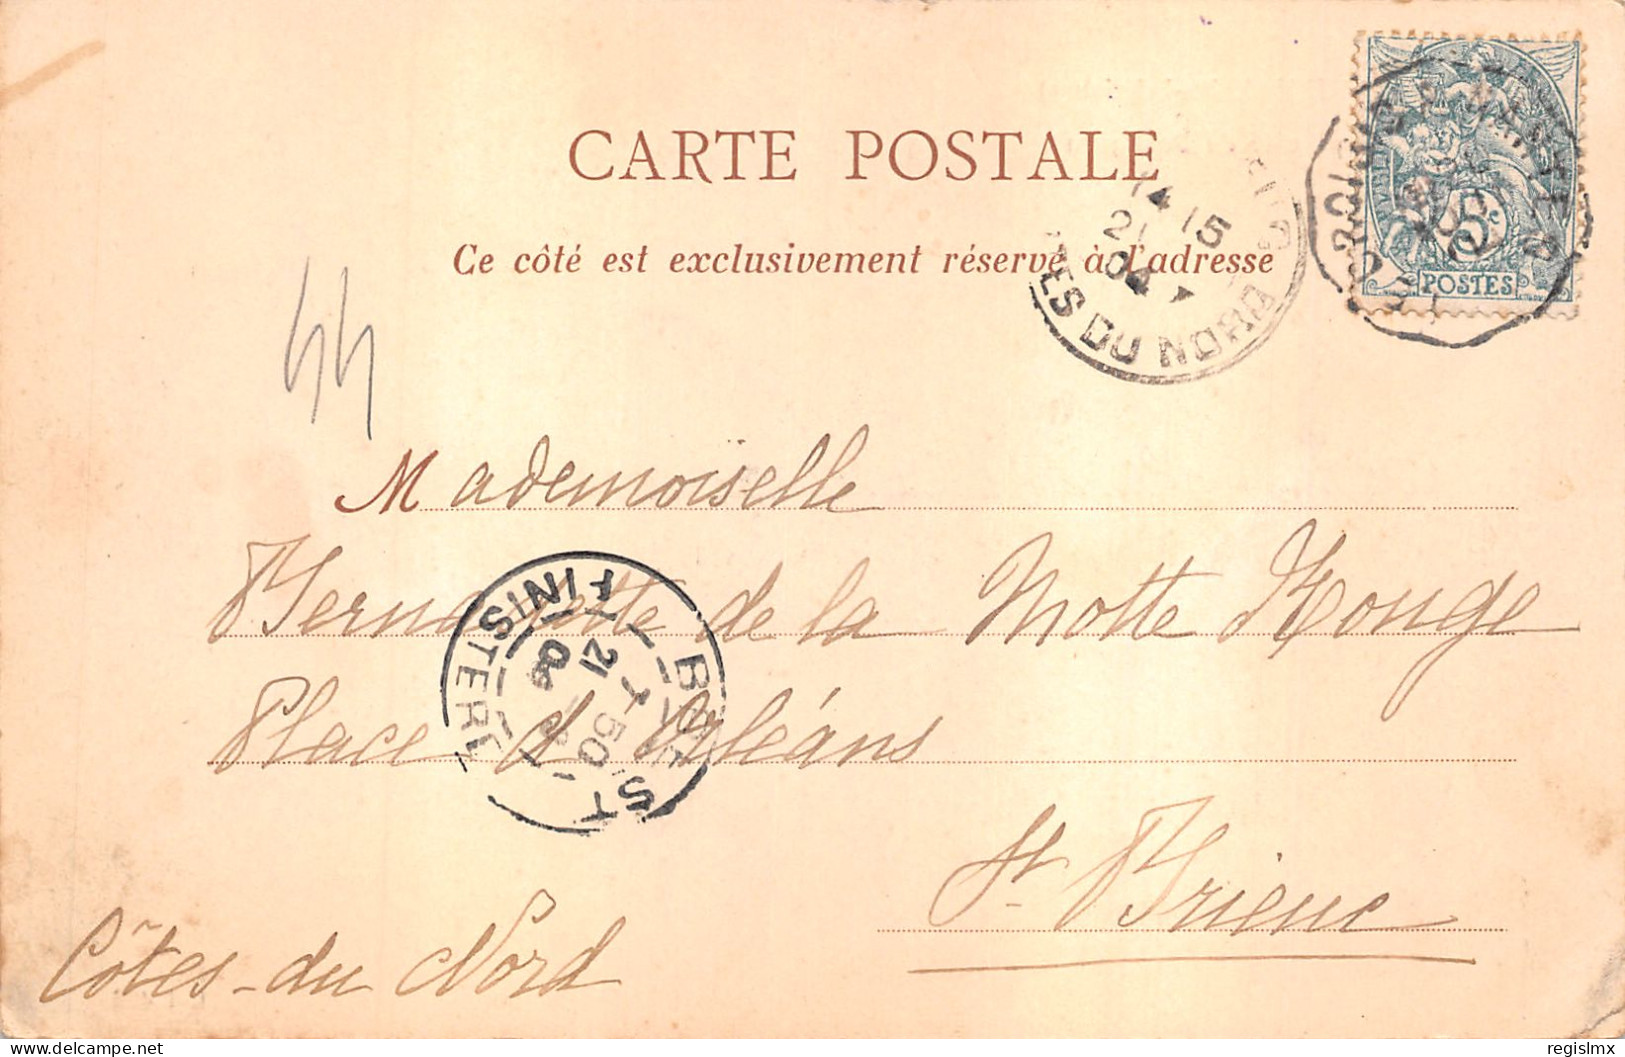 CARTE POSTALE
Ce côté est exclusivement réservé à l'adresse
5c
POSTES
14 15
21
04
ES DU NORD
44
Mademoiselle
Bernadette de la Motte Rouge
Place d'Orléans
St Brieuc
Côtes-du Nord
BREST
21
50
FINISTERE
delcampe.net
regislmx